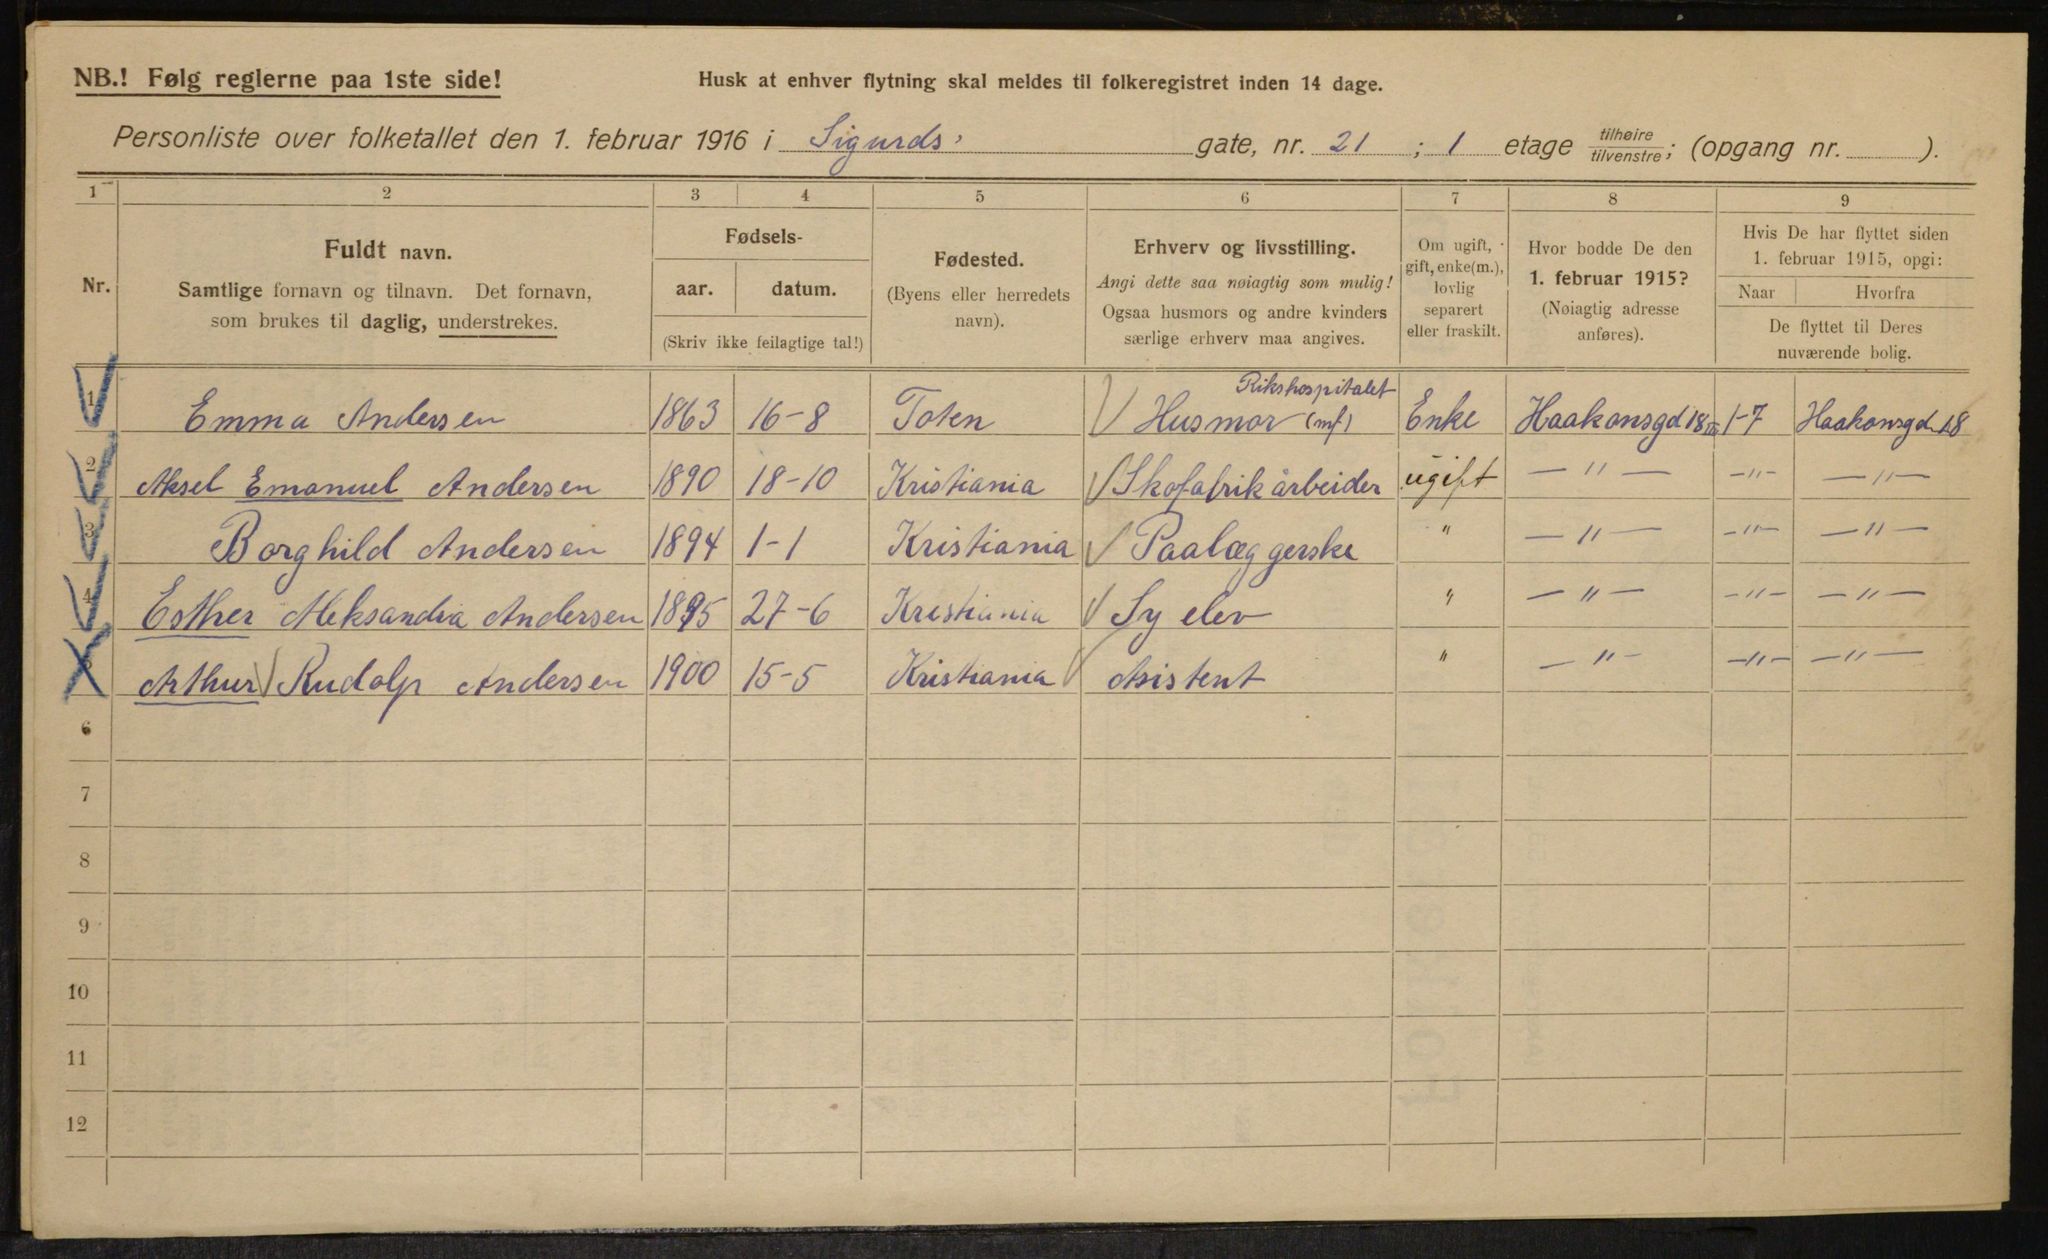 NB.! Følg reglerne paa 1ste side!
Husk at enhver flytning skal meldes til folkeregistret inden 14 dage.
Personliste over folketallet den 1. februar 1916 i Sigurds' gate, nr. 21 ; 1 etage tilhøire/tilvenstre; (opgang nr. ).
1 2 3 4 5 6 7 8 9
Nr.
Fuldt navn.
Samtlige fornavn og tilnavn. Det fornavn,
som brukes til daglig, understrekes.
Fødsels-
aar. datum.
(Skriv ikke feilagtige tal!)
Fødested.
(Byens eller herredets
navn).
Erhverv og livsstilling.
Angi dette saa nøiagtig som mulig!
Ogsaa husmors og andre kvinders
særlige erhverv maa angives.
Om ugift,
gift, enke(m.),
lovlig
separert
eller fraskilt.
Hvor bodde De den
1. februar 1915?
(Nøiagtig adresse
anføres).
Hvis De har flyttet siden
1. februar 1915, opgi:
Naar Hvorfra
De flyttet til Deres
nuværende bolig.
Rikshospitalet
1 Emma Andersen 1863 16-8 Toten Husmor (mf) Enke Haakonsgd 18 III 1-7 Haakonsgd 18
2 Aksel Emanuel Andersen 1890 18-10 Kristiania Skofabrikarbeider ugift — " — — " — — " —
3 Borghild Andersen 1894 1-1 Kristiania Paalæggerske " — " — — " — — " —
4 Esther Aleksandra Andersen 1895 27-6 Kristiania Sy elev " — " — — " — — " —
5 Arthur Rudolp Andersen 1900 15-5 Kristiania Asistent " — " — — " — — " —
6
7
8
9
10
11
12